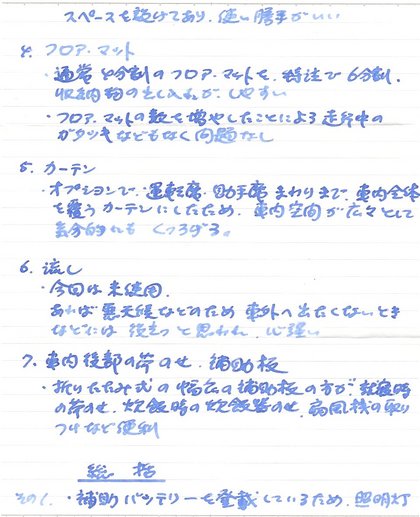 スペースを設けてあり、使い勝手がいい
4. フロア・マット
・通常4分割のフロア・マットを、特注で6分割。
収納物の出し入れがしやすい
・フロア・マットの数を増やしたことによる走行中の
ガタツキなどもなく問題なし
5. カーテン
・オプションで、運転席・助手席まわりまで、車内全体
を覆うカーテンにしたため、車内空間が広々として
気分的にも くつろげる。
6. 流し
・今回は未使用。
あれば悪天候などのため車外へ出たくないとき
などには 役立つと思われ、心強い
7. 車内後部の荷のせ、補助板
・折りたたみ式の幅広の補助板の方が、就寝時
の荷のせ、炊飯時の炊飯器のせ、扇風機の取り
つけなど便利
総括
その1. ・補助バッテリーを登載しているため、照明灯